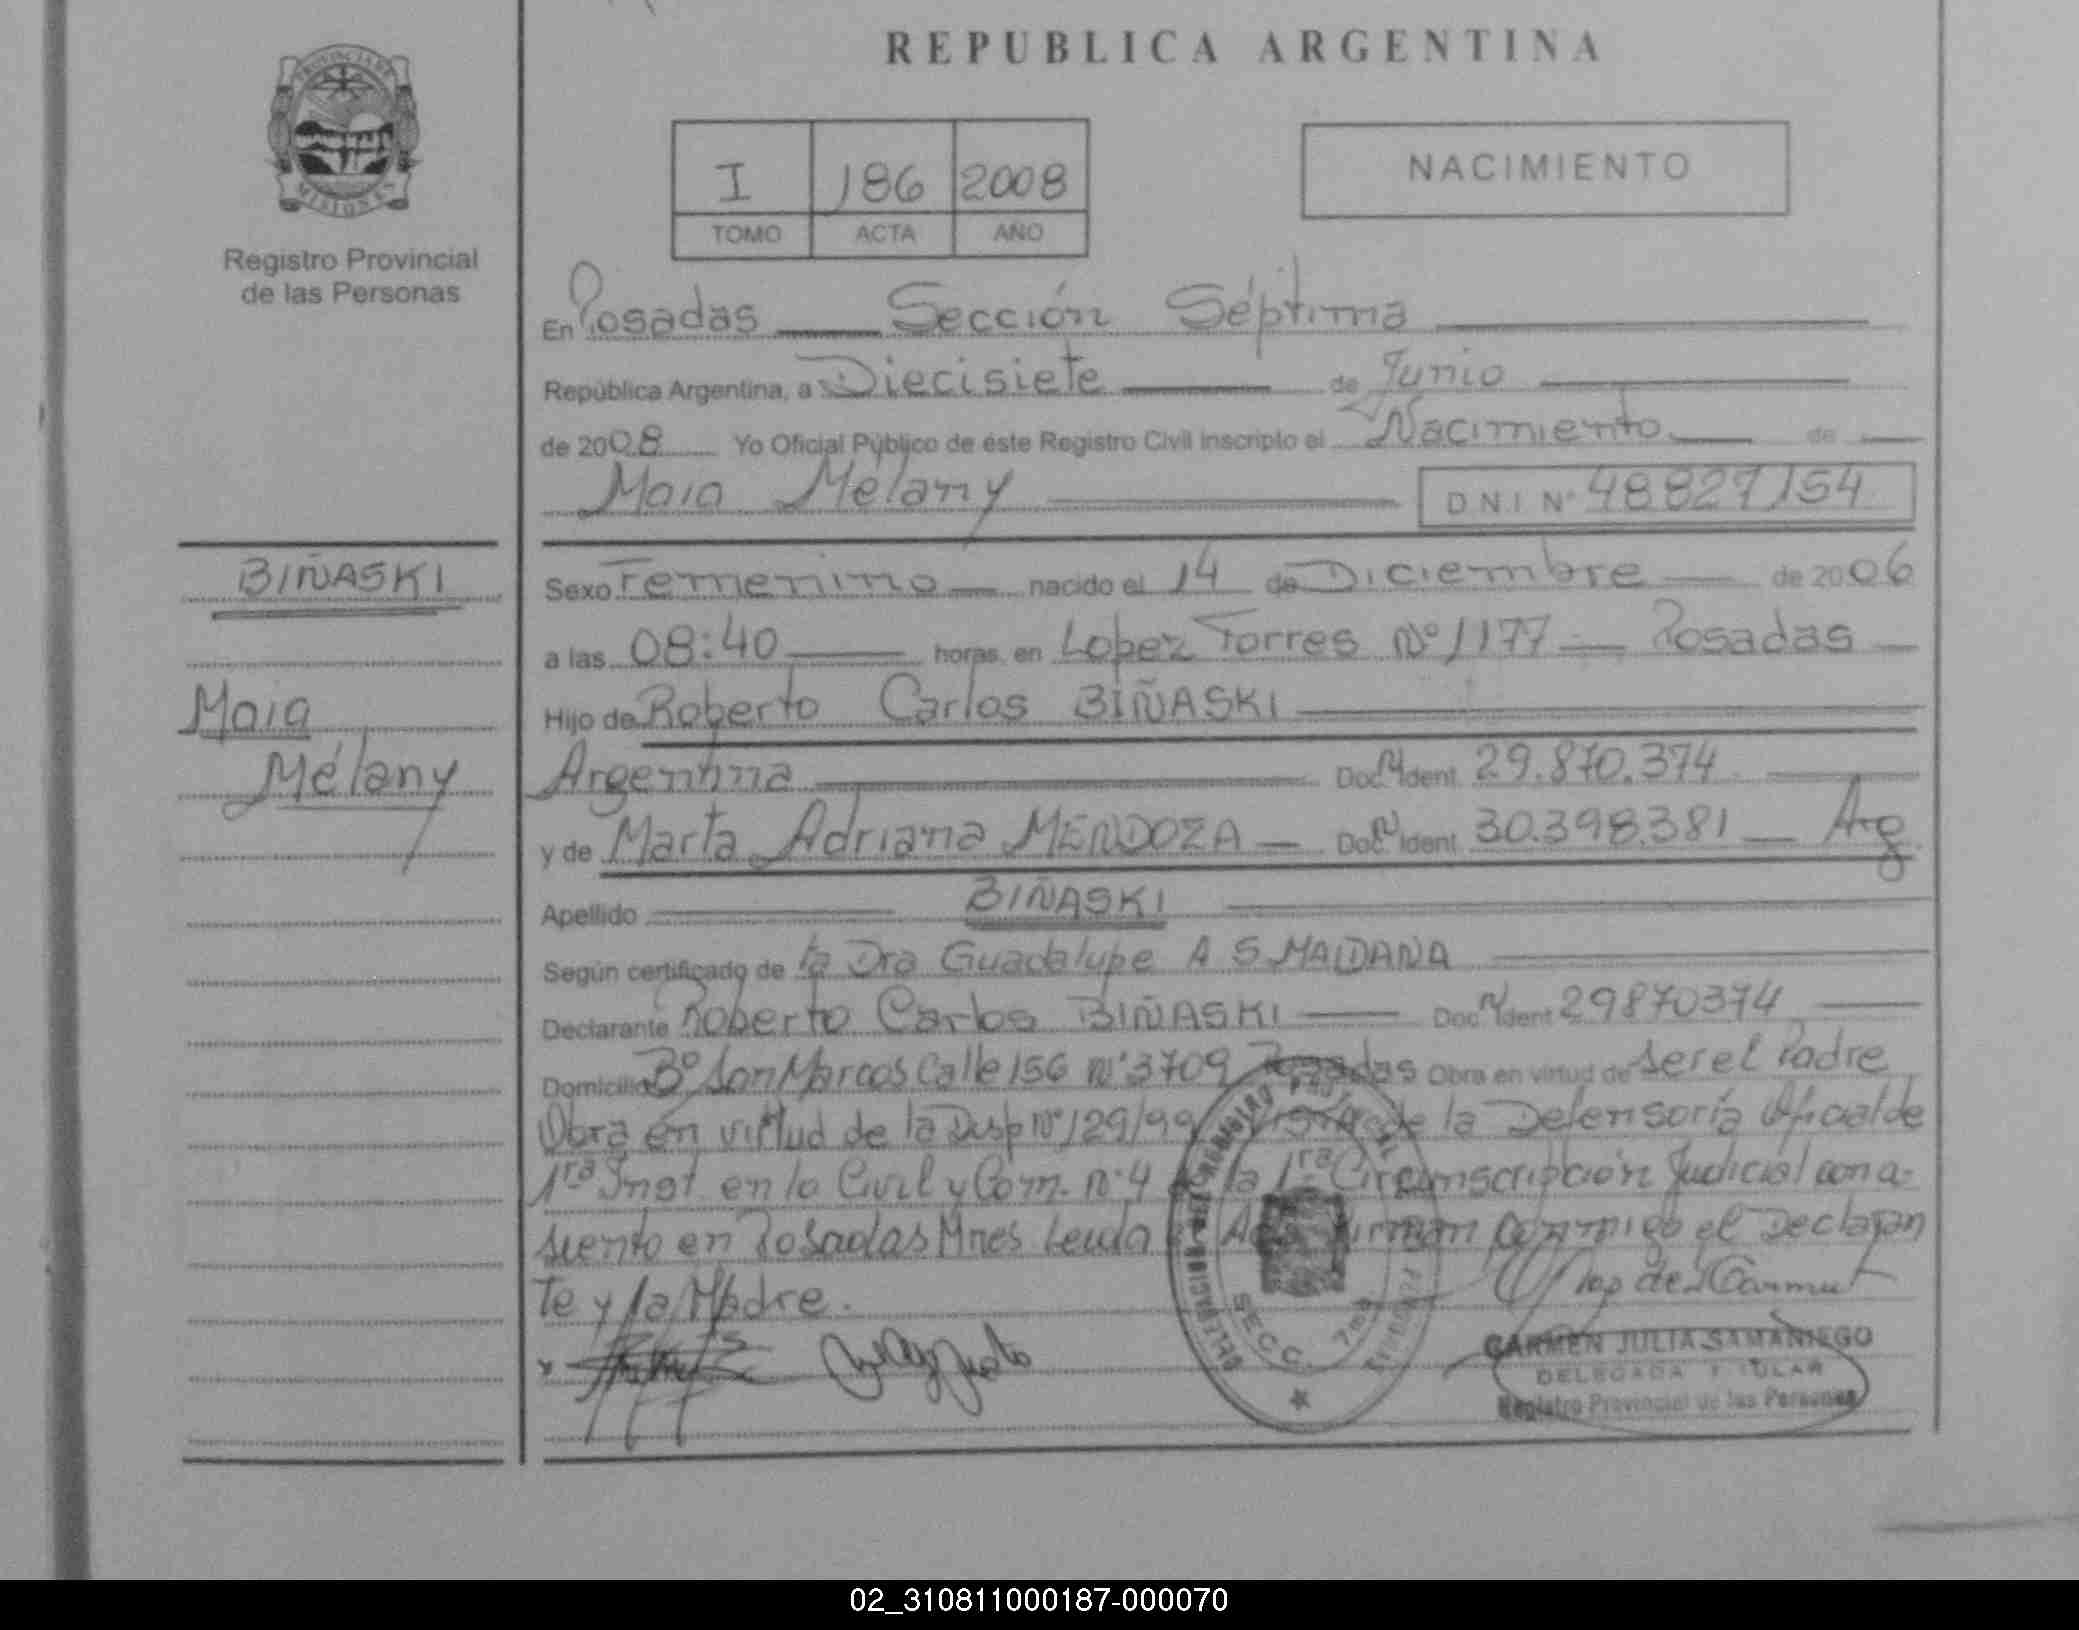 REPUBLICA ARGENTINA
PROVINCIA DE
MISIONES
Registro Provincial
de las Personas
I 186 2008
TOMO ACTA AÑO
NACIMIENTO
En Posadas Sección Séptima
República Argentina, a Diecisiete de Junio
de 2008 Yo Oficial Público de éste Registro Civil inscripto el Nacimiento de
Maia Melany
D N I Nº 48827154
BIÑASKI
Maia
Melany
Sexo Femenino nacido el 14 de Diciembre de 2006
a las 08:40 horas, en Lopez Torres Nº 1177 Posadas
Hijo de Roberto Carlos BIÑASKI
Argentina Doc. N Ident. 29.870.374
y de Marta Adriana MENDOZA Doc. N Ident. 30.398.381 Arg
Apellido BIÑASKI
Según certificado de la Dra Guadalupe A S MALDANA
Declarante Roberto Carlos BIÑASKI Doc N Ident 29870374
Domicilio Bº San Marcos Calle 156 Nº 3709 Posadas Obra en virtud de Ser el Padre
Obra en virtud de la Disp Nº 129/99 de la Defensoría Oficial de
1ra Inst en lo Civil y Com. nº 4 la 1ra Circunscripción Judicial con a-
siento en Posadas Mnes Leida Firman conmigo el Declaran
te y la Madre.
SECC. 7ma
CARMEN JULIA SAMANIEGO
DELEGADA TITULAR
Registro Provincial de las Personas
02_310811000187-000070